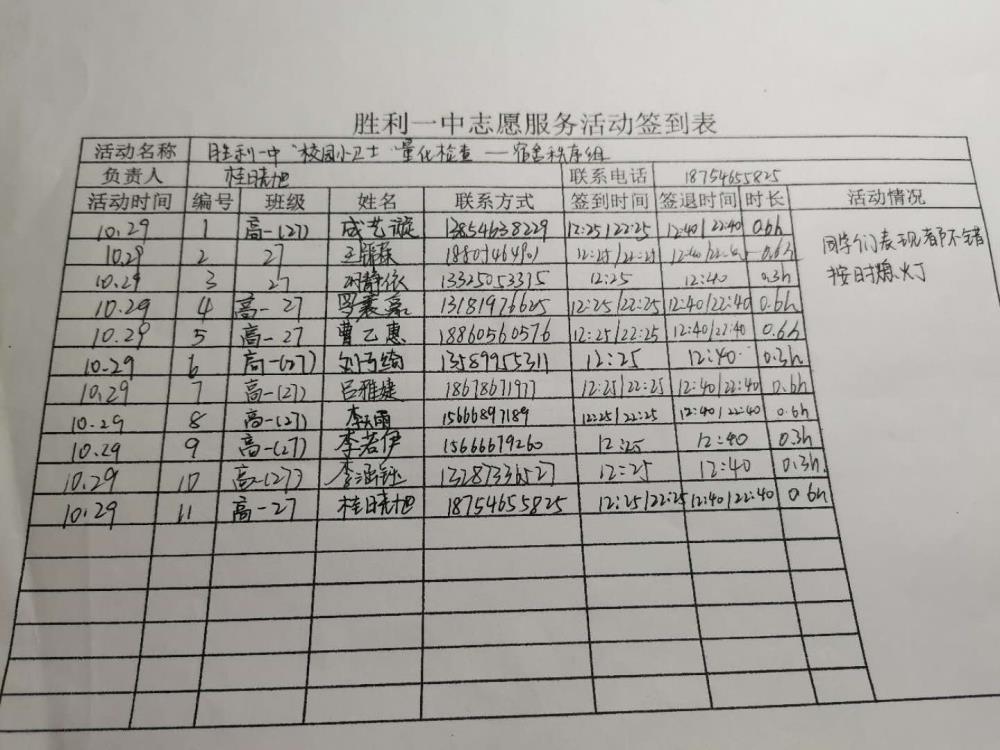 胜利一中志愿服务活动签到表
活动名称 胜利一中"校园小卫士"量化检查——宿舍秩序组
负责人 桂晓旭 联系电话 18754655825
活动时间 编号 班级 姓名 联系方式 签到时间 签退时间 时长 活动情况
10.29 1 高一(27) 成艺璇 13854638229 12:25/22:25 12:40/22:40 0.6h
同学们表现都不错
10.29 2 27 12:25/22:25 12:40/22:40 0.6h
按时熄灯
10.29 3 27 静依 13325053315 12:25 12:40 0.3h
10.29 4 高一27 13181976625 12:25/22:25 12:40/22:40 0.6h
10.29 5 高一27 曹乙惠 18860560576 12:25/22:25 12:40/22:40 0.6h
10.29 6 高一(27) 13589955311 12:25 12:40 0.3h
10.29 7 高一(27) 吕雅婕 18678671977 12:25/22:25 12:40/22:40 0.6h
10.29 8 高一(27) 15666897189 12:25/22:25 12:40/22:40 0.6h
10.29 9 高一(27) 李若伊 15666679260 12:25 12:40 0.3h
10.29 10 高一(27) 13287336527 12:25 12:40 0.3h
10.29 11 高一27 桂晓旭 18754655825 12:25/22:25 12:40/22:40 0.6h